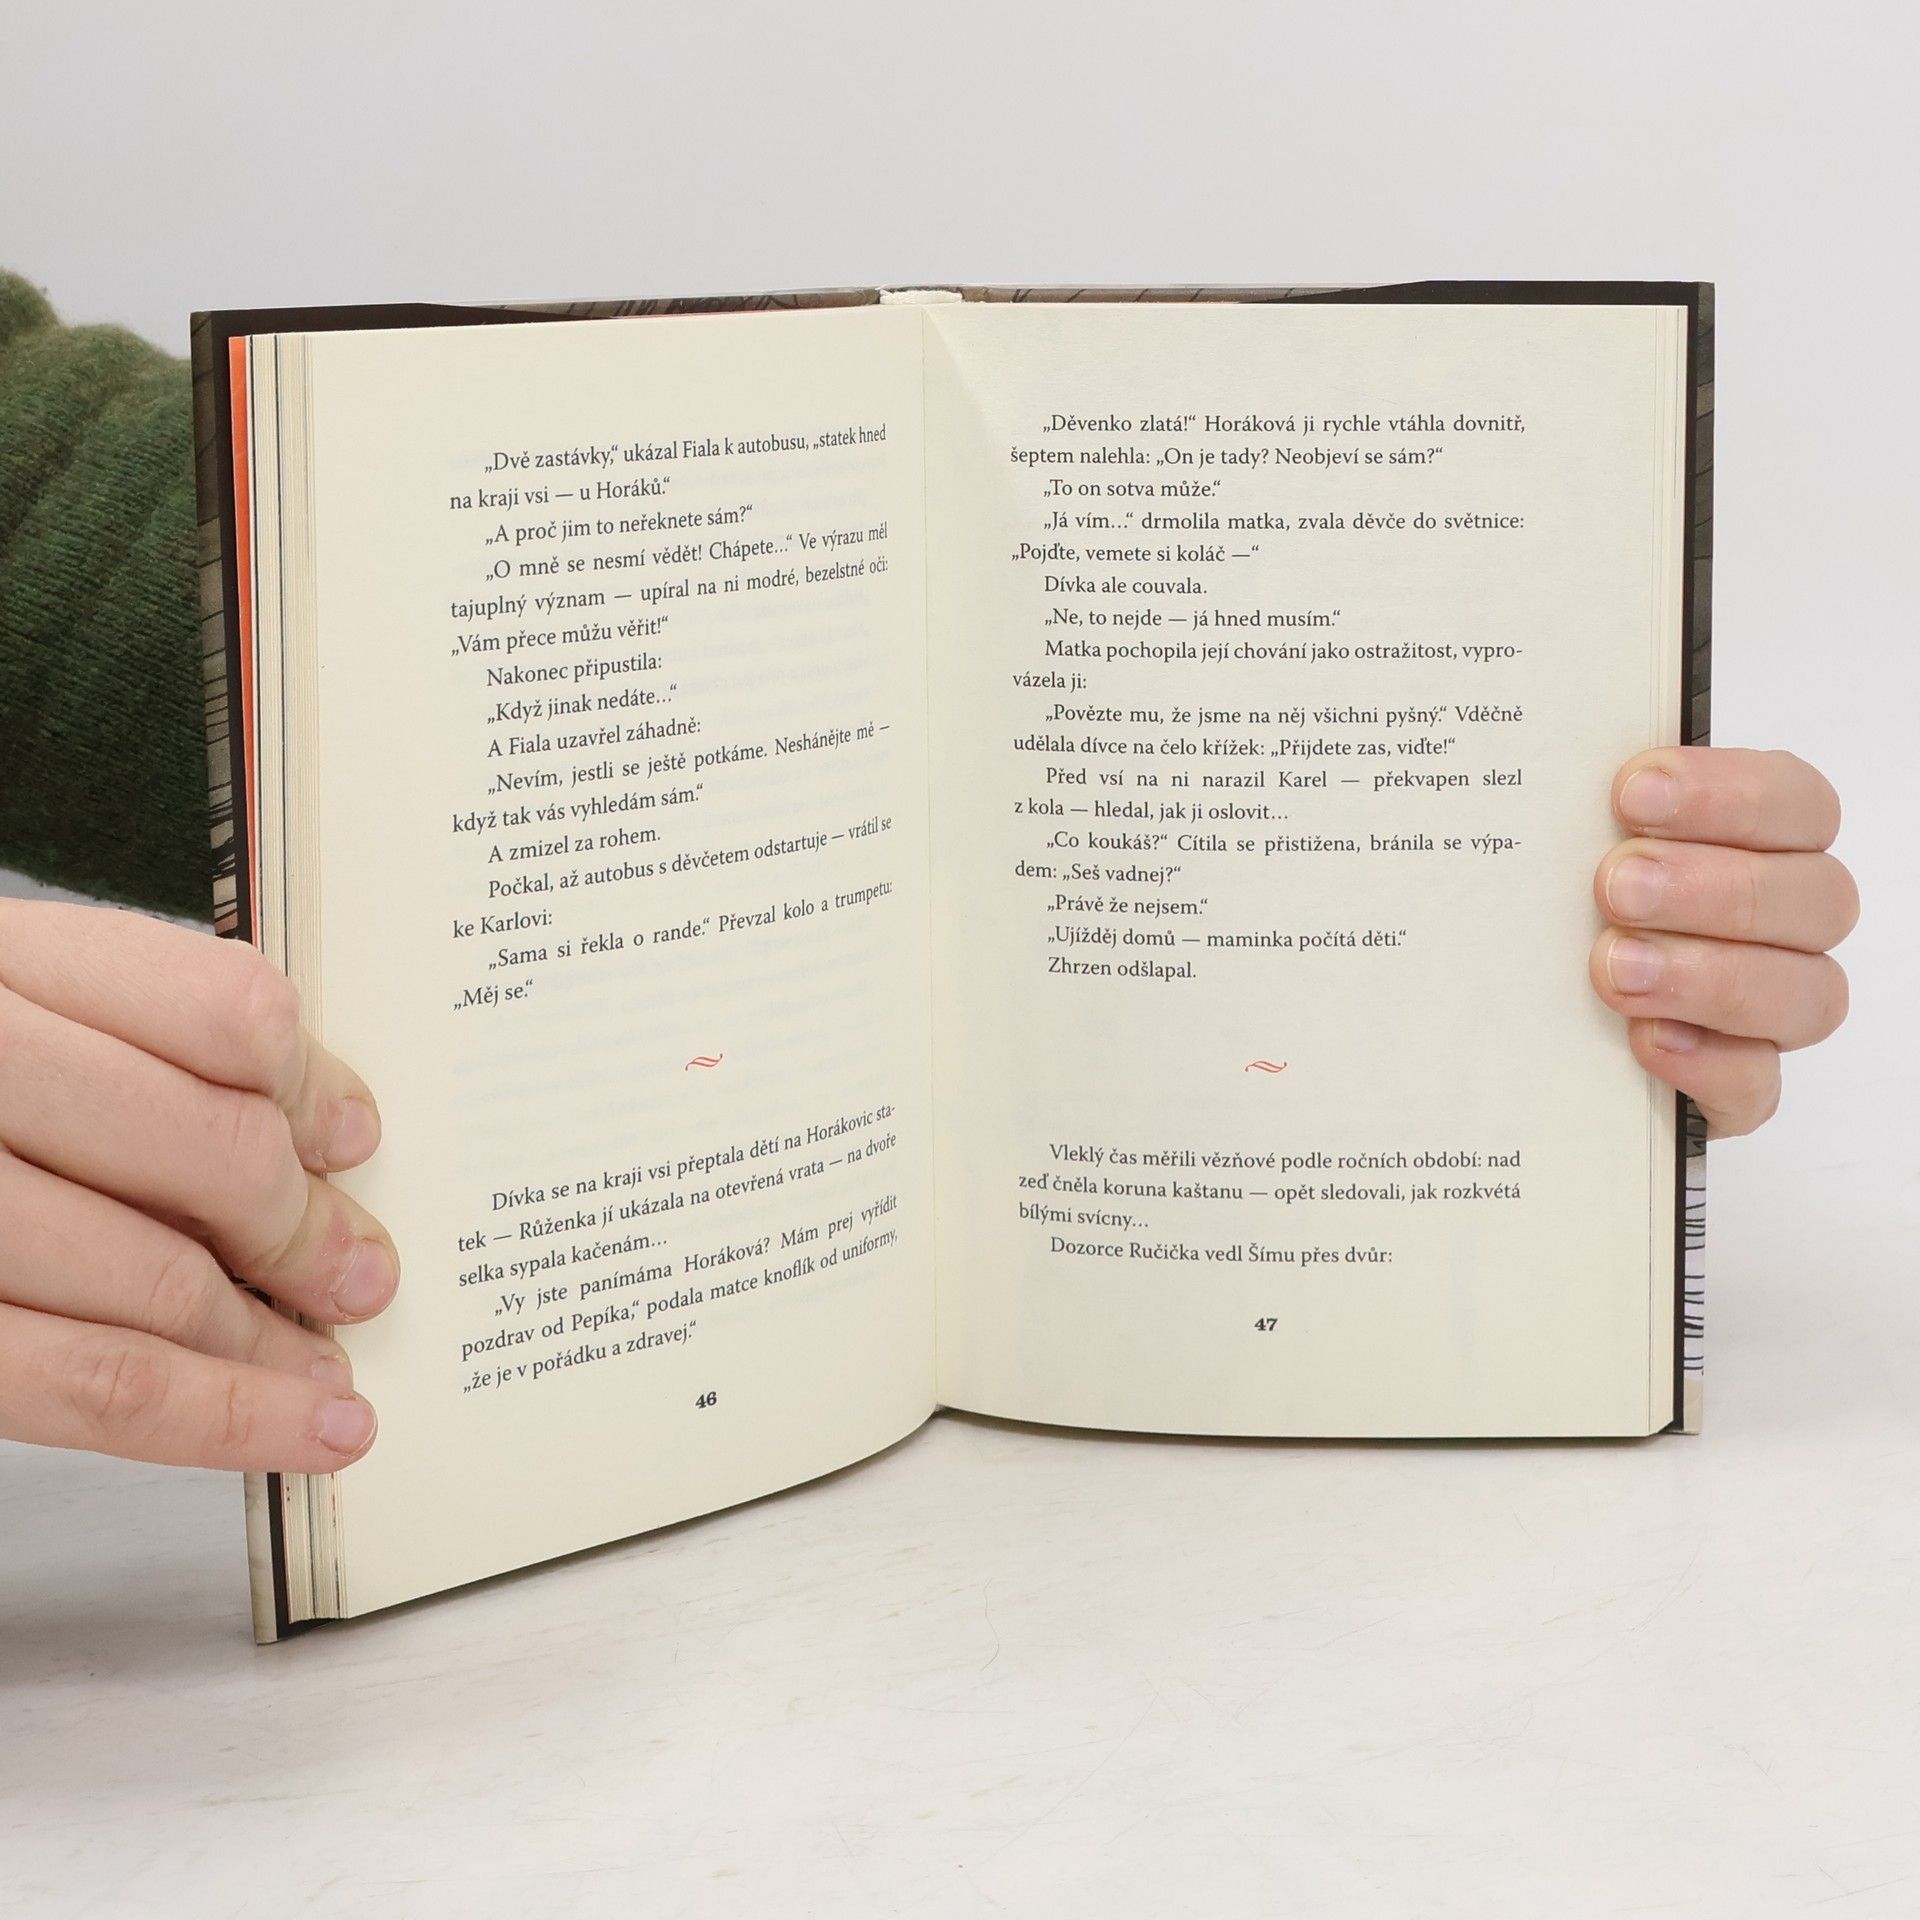 „Dvě zastávky,“ ukázal Fiala k autobusu, „statek hned
na kraji vsi — u Horáků.“
„A proč jim to neřeknete sám?“
„O mně se nesmí vědět! Chápete…“ Ve výrazu měl
tajuplný význam — upíral na ni modré, bezelstné oči:
„Vám přece můžu věřit!“
Nakonec připustila:
„Když jinak nedáte…“
A Fiala uzavřel záhadně:
„Nevím, jestli se ještě potkáme. Neshánějte mě –
když tak vás vyhledám sám.“
A zmizel za rohem.
Počkal, až autobus s děvčetem odstartuje — vrátil se
ke Karlovi:
„Sama si řekla o rande.“ Převzal kolo a trumpetu:
„Měj se.“
Dívka se na kraji vsi přeptala dětí na Horákovic sta-
tek — Růženka jí ukázala na otevřená vrata — na dvoře
selka sypala kačenám…
„Vy jste panímáma Horáková? Mám prej vyřídit
pozdrav od Pepíka,“ podala matce knoflík od uniformy,
„že je v pořádku a zdravej.“
46
„Děvenko zlatá!“ Horáková ji rychle vtáhla dovnitř,
šeptem nalehla: „On je tady? Neobjeví se sám?“
„To on sotva může.“
„Já vím…“ drmolila matka, zvala děvče do světnice:
„Pojďte, vemete si koláč —“
Dívka ale couvala.
„Ne, to nejde — já hned musím.“
Matka pochopila její chování jako ostražitost, vypro-
vázela ji:
„Povězte mu, že jsme na něj všichni pyšný.“ Vděčně
udělala dívce na čelo křížek: „Přijdete zas, viďte!“
Před vsí na ni narazil Karel — překvapen slezl
z kola — hledal, jak ji oslovit…
„Co koukáš?“ Cítila se přistižena, bránila se výpa-
dem: „Seš vadnej?“
„Právě že nejsem.“
„Ujížděj domů — maminka počítá děti.“
Zhrzen odšlapal.
Vleklý čas měřili vězňové podle ročních období: nad
zeď čněla koruna kaštanu — opět sledovali, jak rozkvétá
bílými svícny…
Dozorce Ručička vedl Šímu přes dvůr:
47